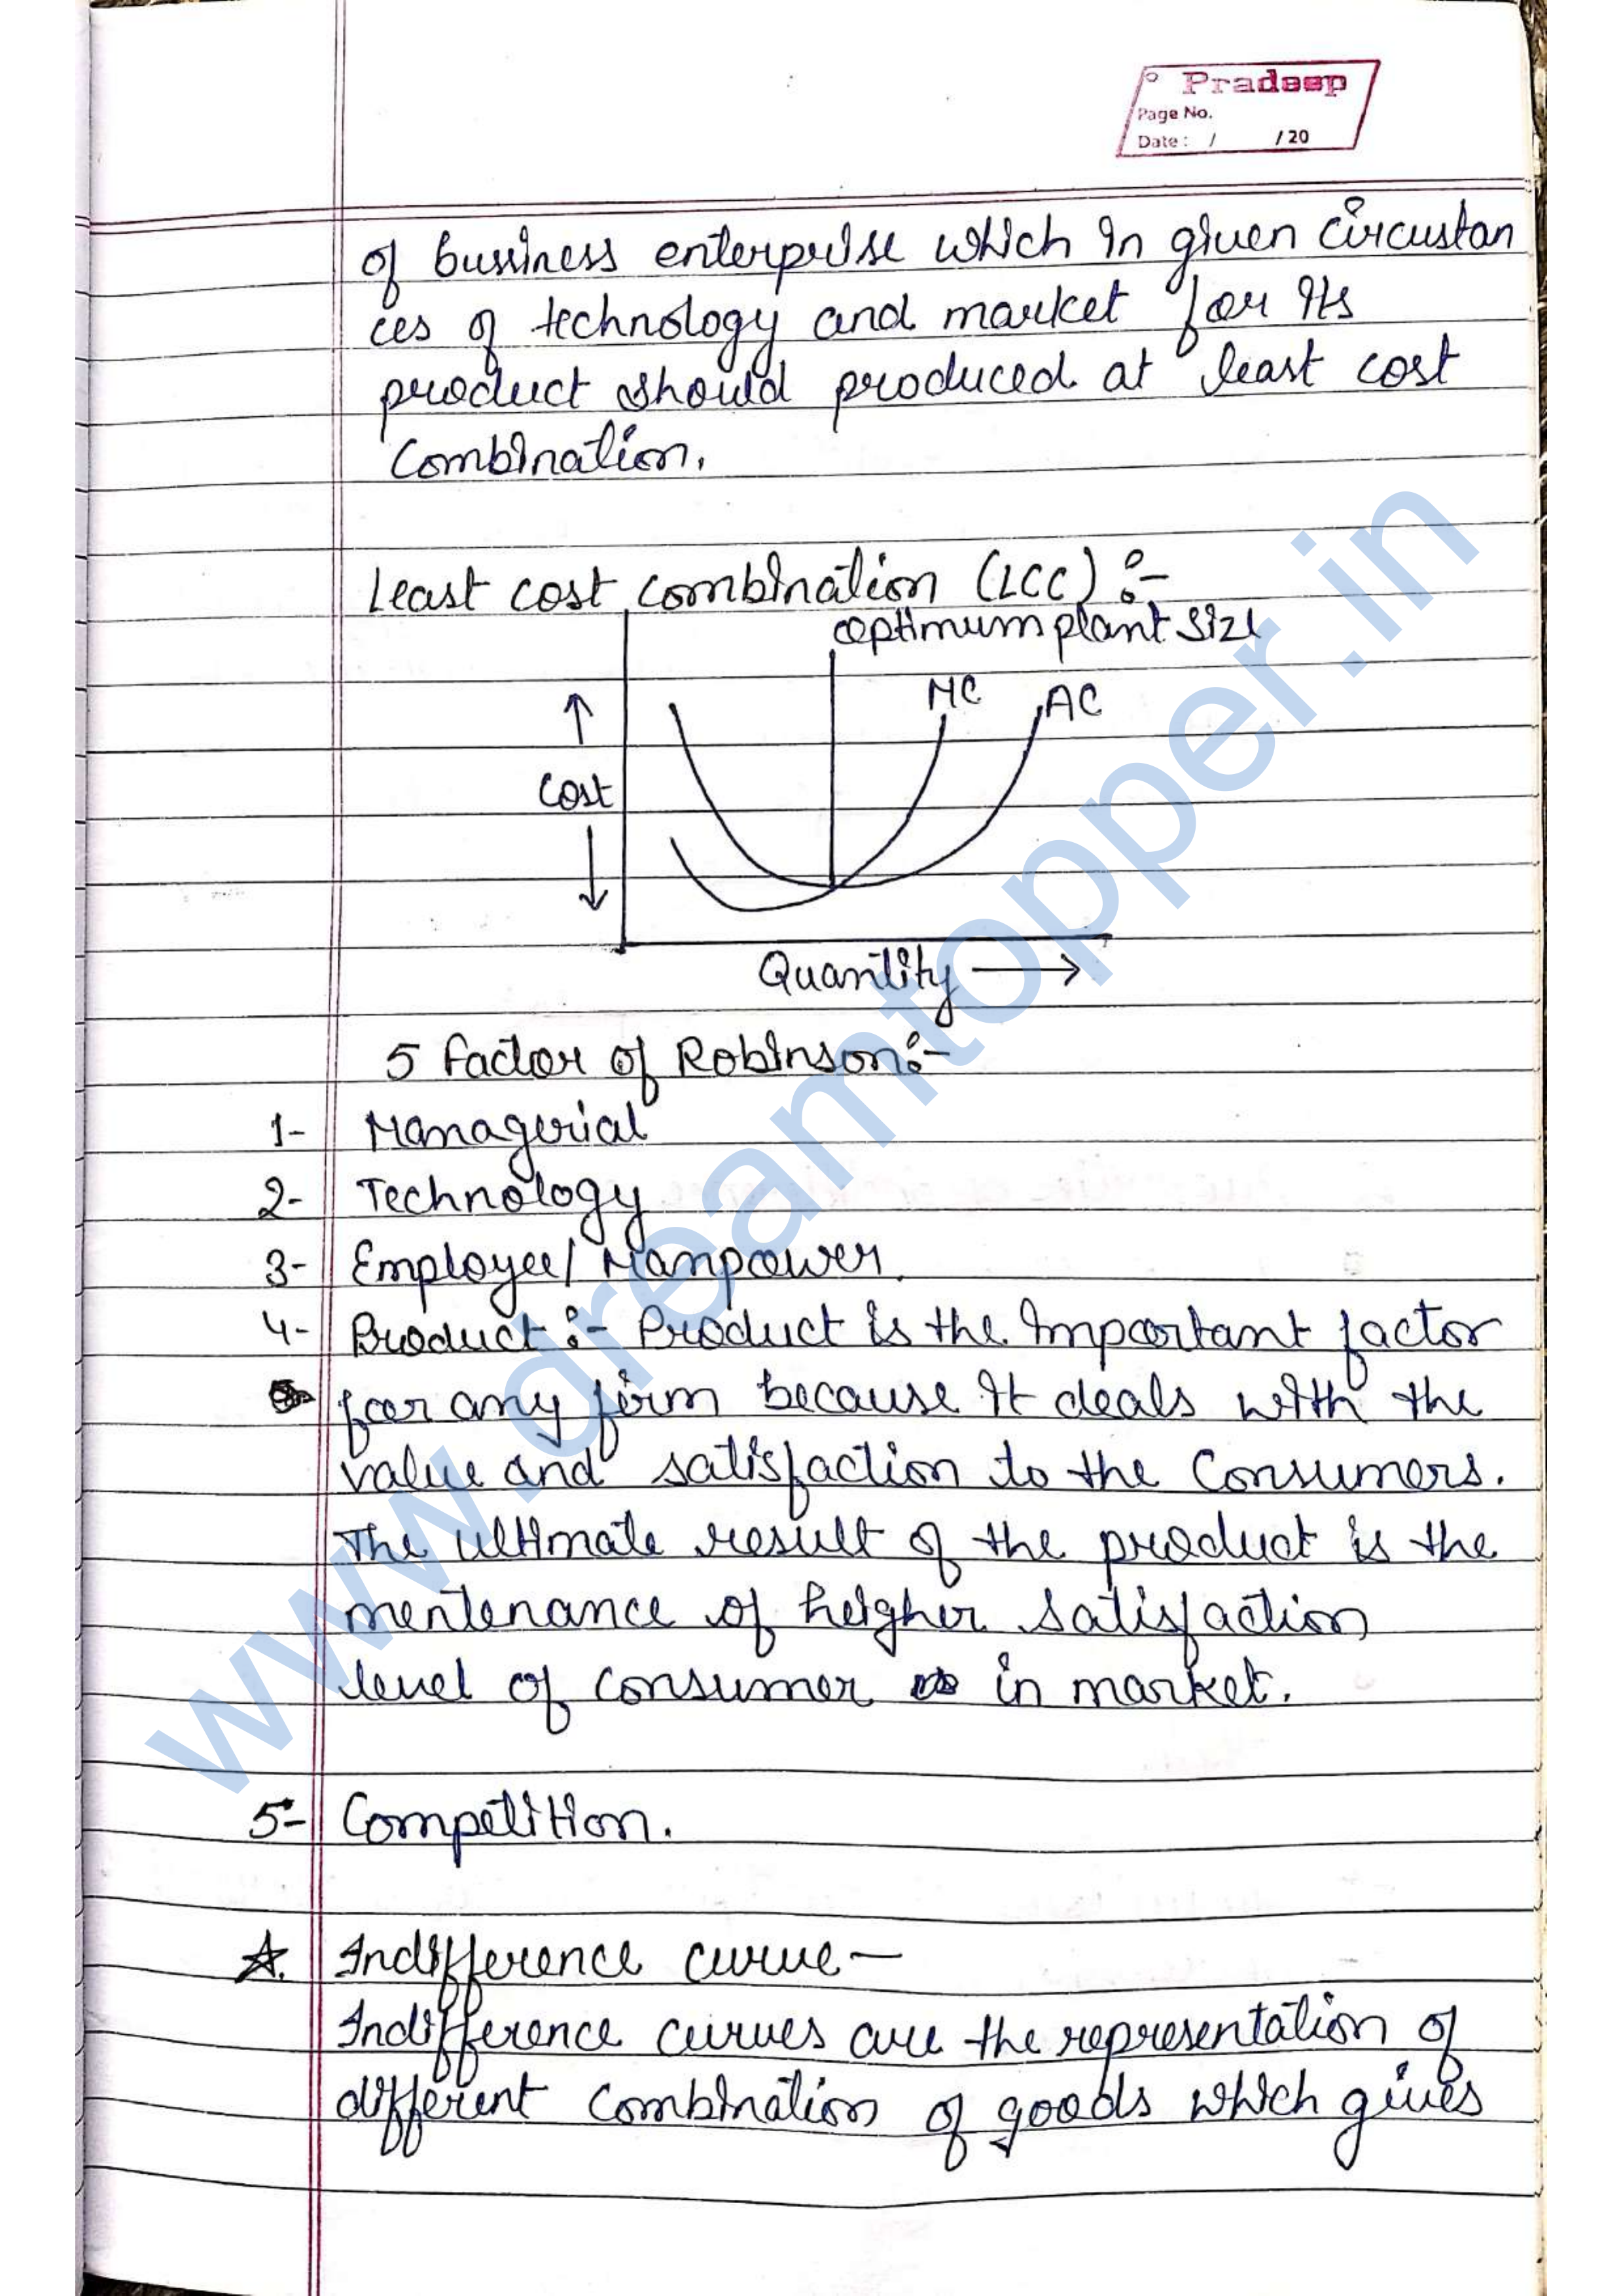 Pradeep
Page No.
Date : / / 20
of bussiness enterprise which in given circustan
ces of technology and market for its
product should produced at least cost
Combination.
Least cost combination (LCC) :-
optimum plant size
MC
AC
Cost
Quantity
5 factor of Robinson:-
1- Managerial
2- Technology
3- Employee/Manpower.
4- Product :- Product is the important factor
for any firm because it deals with the
value and satisfaction to the Consumers.
The ultimate result of the product is the
mentenance of heigher satisfaction
level of consumer in market.
5- Competition.
Indifference curve-
Indifference curves are the representation of
different combination of goods which gives
www.dreamtopper.in